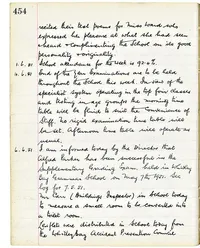 454
recited their test poems for Miss Ward, who
expressed her pleasure at what she had seen
& heard & complimenting the School on its good
personality & originality.
School attendance for the week is 92.4%.
End of the Year Examinations are to be held
throughout the School this week. In view of the
specialist system operating in the top four classes
and testing in age groups the morning time
table will be fluid to suit the convenience of
Staff. No rigid examination time table will
be set. Afternoon time table will operate as
usual.
I am informed today by the Director that
Alfred has been successful in the
Supplementary Grading Exam. held in
Grammar School on May 7th 1951. See
log for 7.5.51.
(Buildings Inspector) in School today
to measure a small room to be converted into
a rest room.
Leaflet was distributed in School today from
the Accident Prevention Council